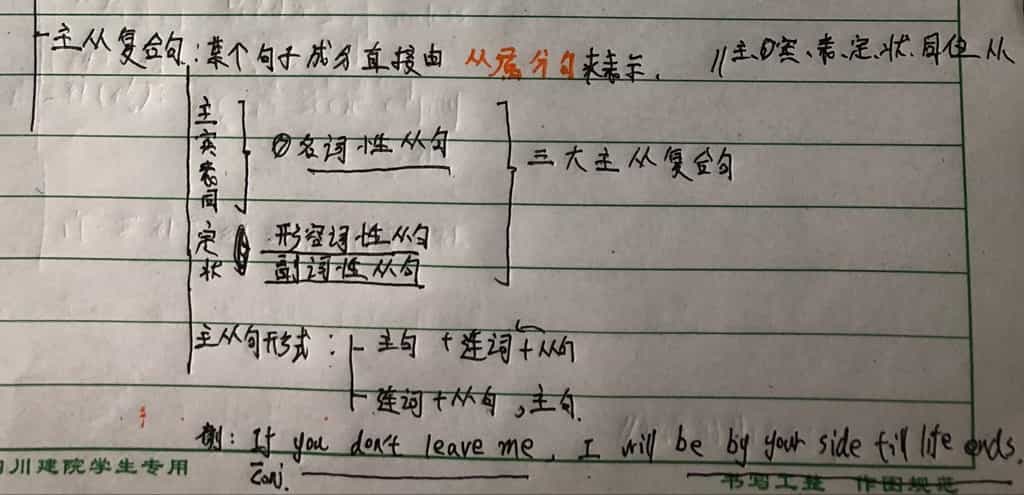 主从复合句:某个句子成分直接由从属分句来表示. //主、宾、表、定、状、同位从
主
宾
表
同
①名词性从句
三大主从复合句
定 形容词性从句
状 副词性从句
主从句形式: 主句+连词+从句
连词+从句,主句.
例: If you don't leave me, I will be by your side till life ends.
Conj.
川建院学生专用
书写工整 作图规范